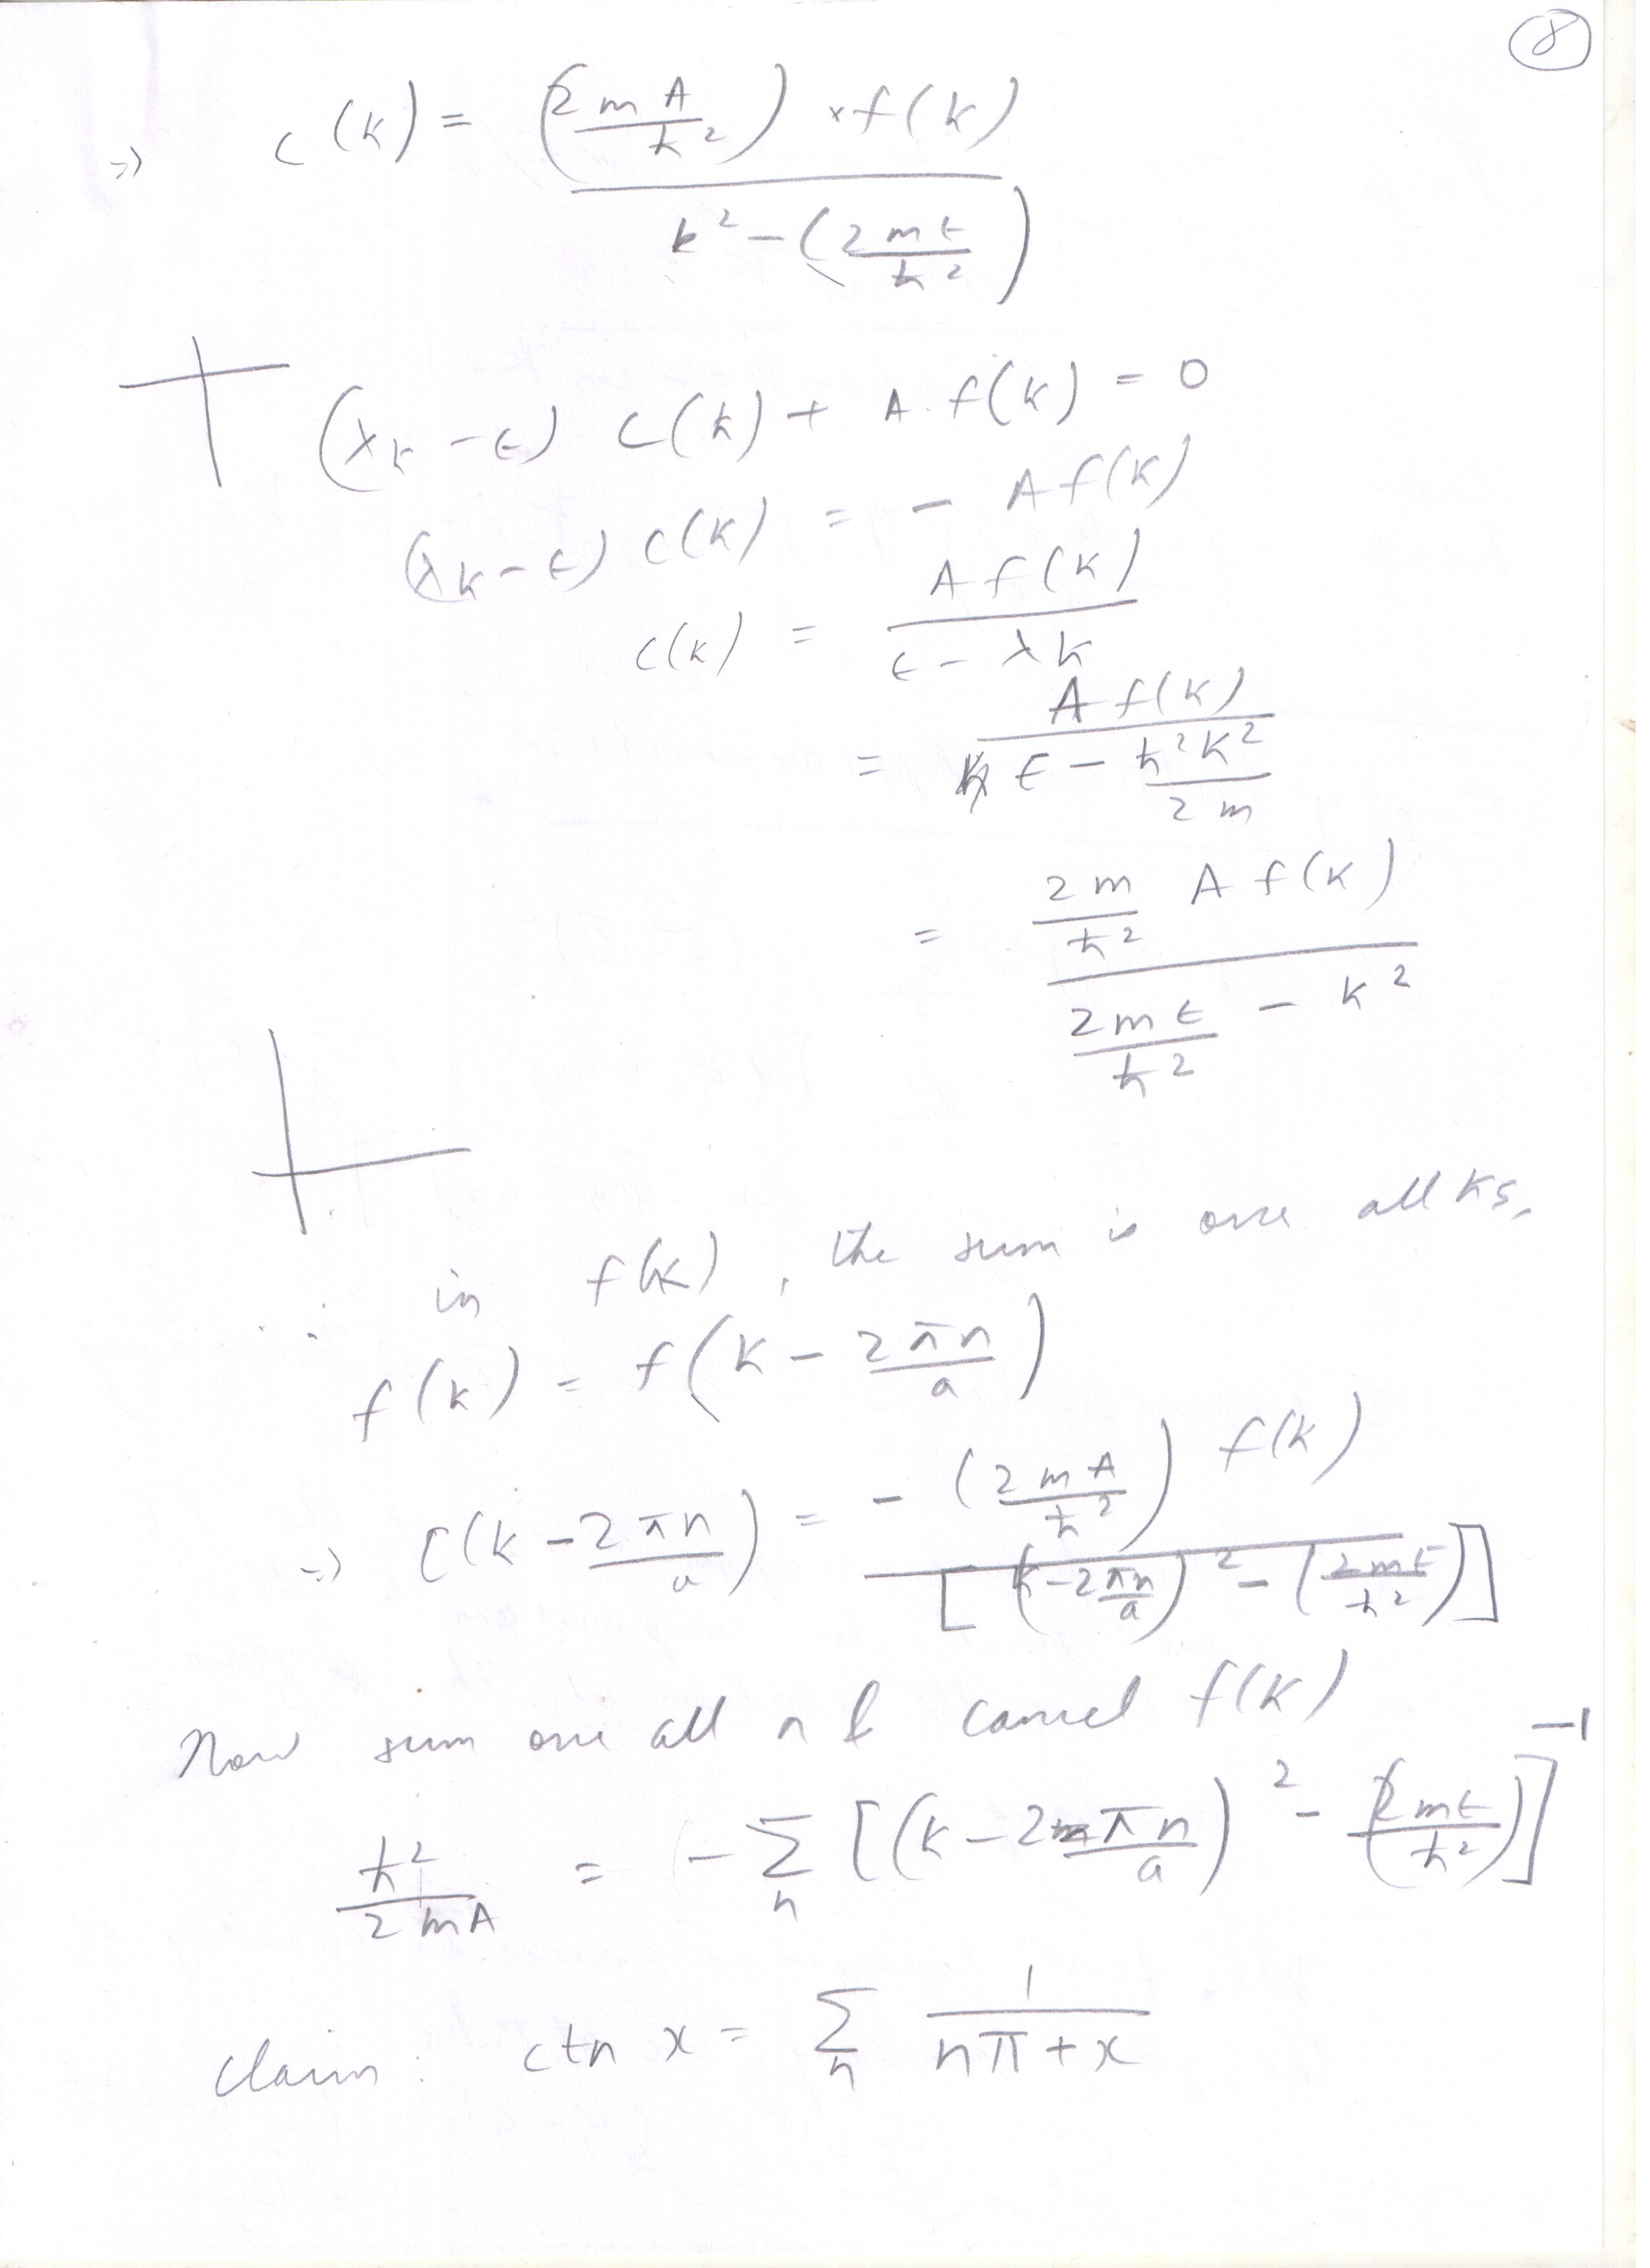 8
⇒ C(k) = (2mA/ħ²) × f(k) / k² − (2mε/ħ²)
(λk − ε) C(k) + A f(k) = 0
(λk − ε) C(k) = − A f(k)
C(k) = A f(k) / ε − λk
= A f(k) / ε − ħ²k²/2m
= 2m/ħ² A f(k) / 2mε/ħ² − k²
∴ in f(k), the sum is over all ks.
f(k) = f(k − 2πn/a)
⇒ C(k − 2πn/a) = − (2mA/ħ²) f(k) / [(k − 2πn/a)² − (2mε/ħ²)]
Now sum over all n & cancel f(k)
ħ²/2mA = − Σn [(k − 2πn/a)² − (2mε/ħ²)]⁻¹
Claim: ctn x = Σn 1/nπ + x